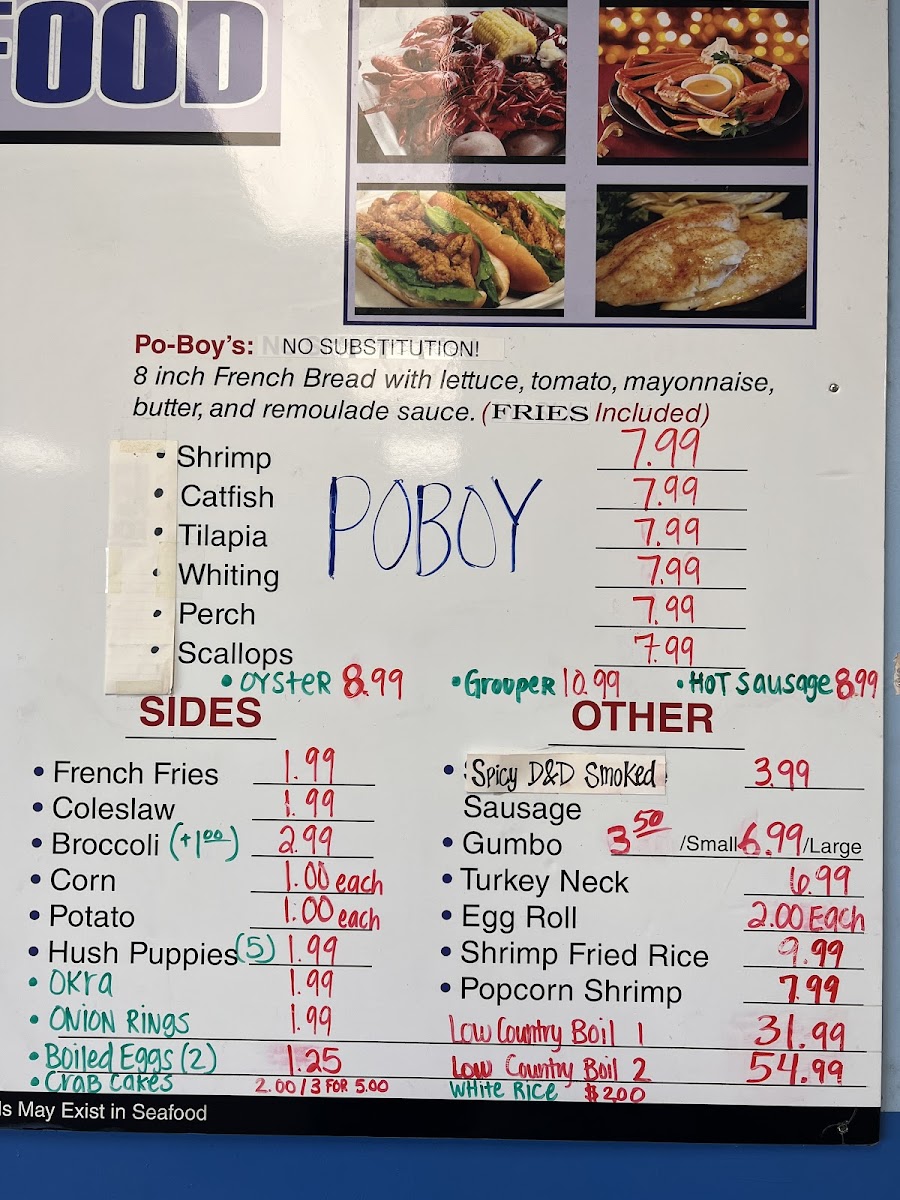 FOOD
Po-Boy's: NO SUBSTITUTION!
8 inch French Bread with lettuce, tomato, mayonnaise,
butter, and remoulade sauce. (FRIES Included)
• Shrimp 7.99
• Catfish 7.99
• Tilapia 7.99
POBOY
• Whiting 7.99
• Perch 7.99
• Scallops 7.99
• OYSTER 8.99 • GROUPER 10.99 • HOT Sausage 8.99
SIDES
• French Fries 1.99
• Coleslaw 1.99
• Broccoli (+1⁰⁰) 2.99
• Corn 1.00 each
• Potato 1.00 each
• Hush Puppies (5) 1.99
• OKra 1.99
• ONION RINGS 1.99
• Boiled Eggs (2) 1.25
• Crab Cakes 2.00 / 3 FOR 5.00
OTHER
• Spicy D&D Smoked 3.99
Sausage
• Gumbo 3⁵⁰ /Small 6.99 /Large
• Turkey Neck 6.99
• Egg Roll 2.00 Each
• Shrimp Fried Rice 9.99
• Popcorn Shrimp 7.99
Low Country Boil 1 31.99
Low Country Boil 2 54.99
WHITE RICE $2.00
ls May Exist in Seafood